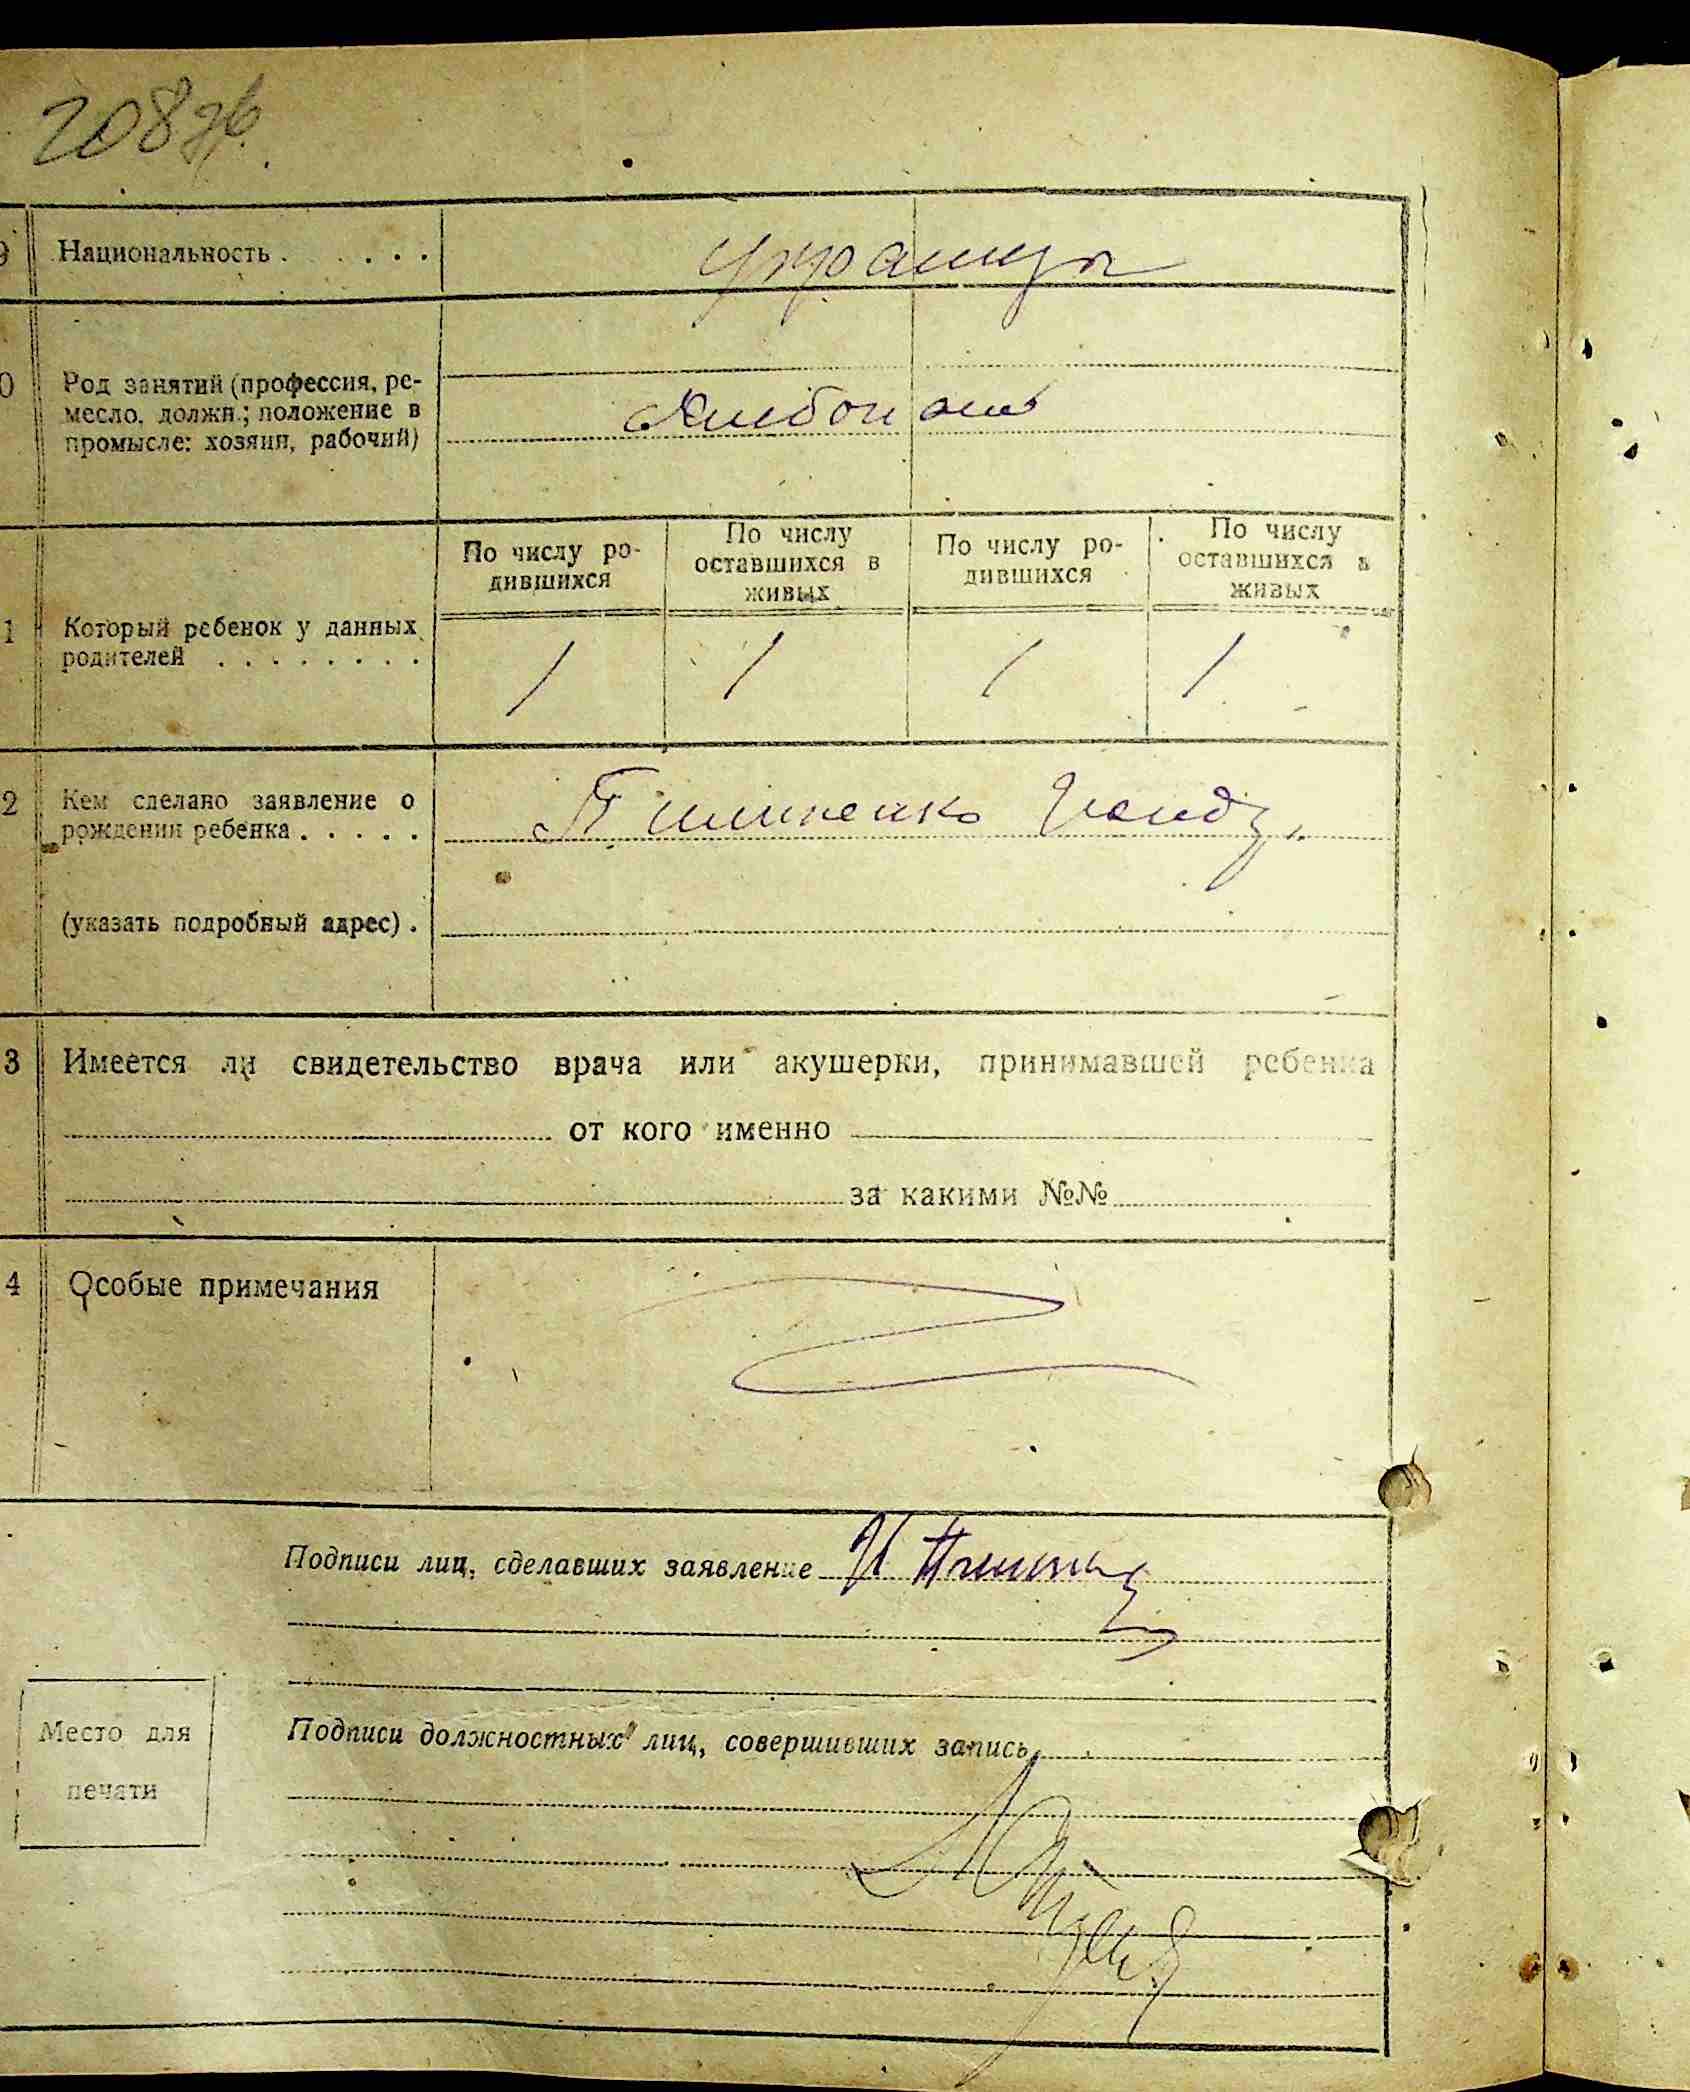 208 зв.
9 Национальность . . . . .
украинцы
10 Род занятий (профессия, ре-
месло, должн.; положение в
промысле: хозяин, рабочий)
Хлебопаш
По числу ро-
дившихся
По числу
оставшихся в
живых
По числу ро-
дившихся
По числу
оставшихся в
живых
1 Который ребенок у данных
родителей . . . . . . . .
1 1 1 1
2 Кем сделано заявление о
рождении ребенка . . . . .
(указать подробный адрес) .
3 Имеется ли свидетельство врача или акушерки, принимавшей ребенка
от кого именно
за какими №№
4 Особые примечания
Подписи лиц, сделавших заявление
Место для
печати
Подписи должностных лиц, совершивших запись